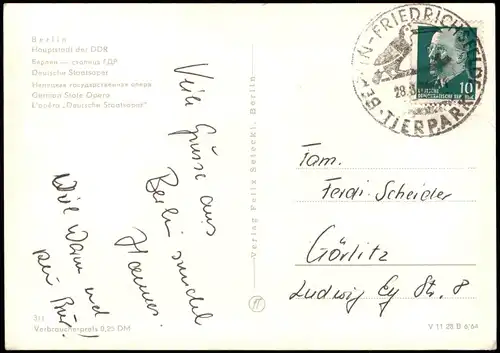 Berlin
Hauptstadt der DDR
Берлин — столица ГДР
Deutsche Staatsoper
Немецкая государственная опера
German State Opera
L'opéra „Deutsche Staatsoper“
Viele Grüsse aus
Berlin sendet
Hannes.
Viel
und
3/1
Verbraucherpreis 0,25 DM
Verlag Felix Setecki, Berlin
BERLIN-FRIEDRICHSFELDE
TIERPARK
28.8
10
DEUTSCHE
DEMOKRATISCHE REPUBLIK
Fam.
Ferdi-Scheider
Görlitz
Ludwig Ey Str. 8
V 11 28 B 6/64